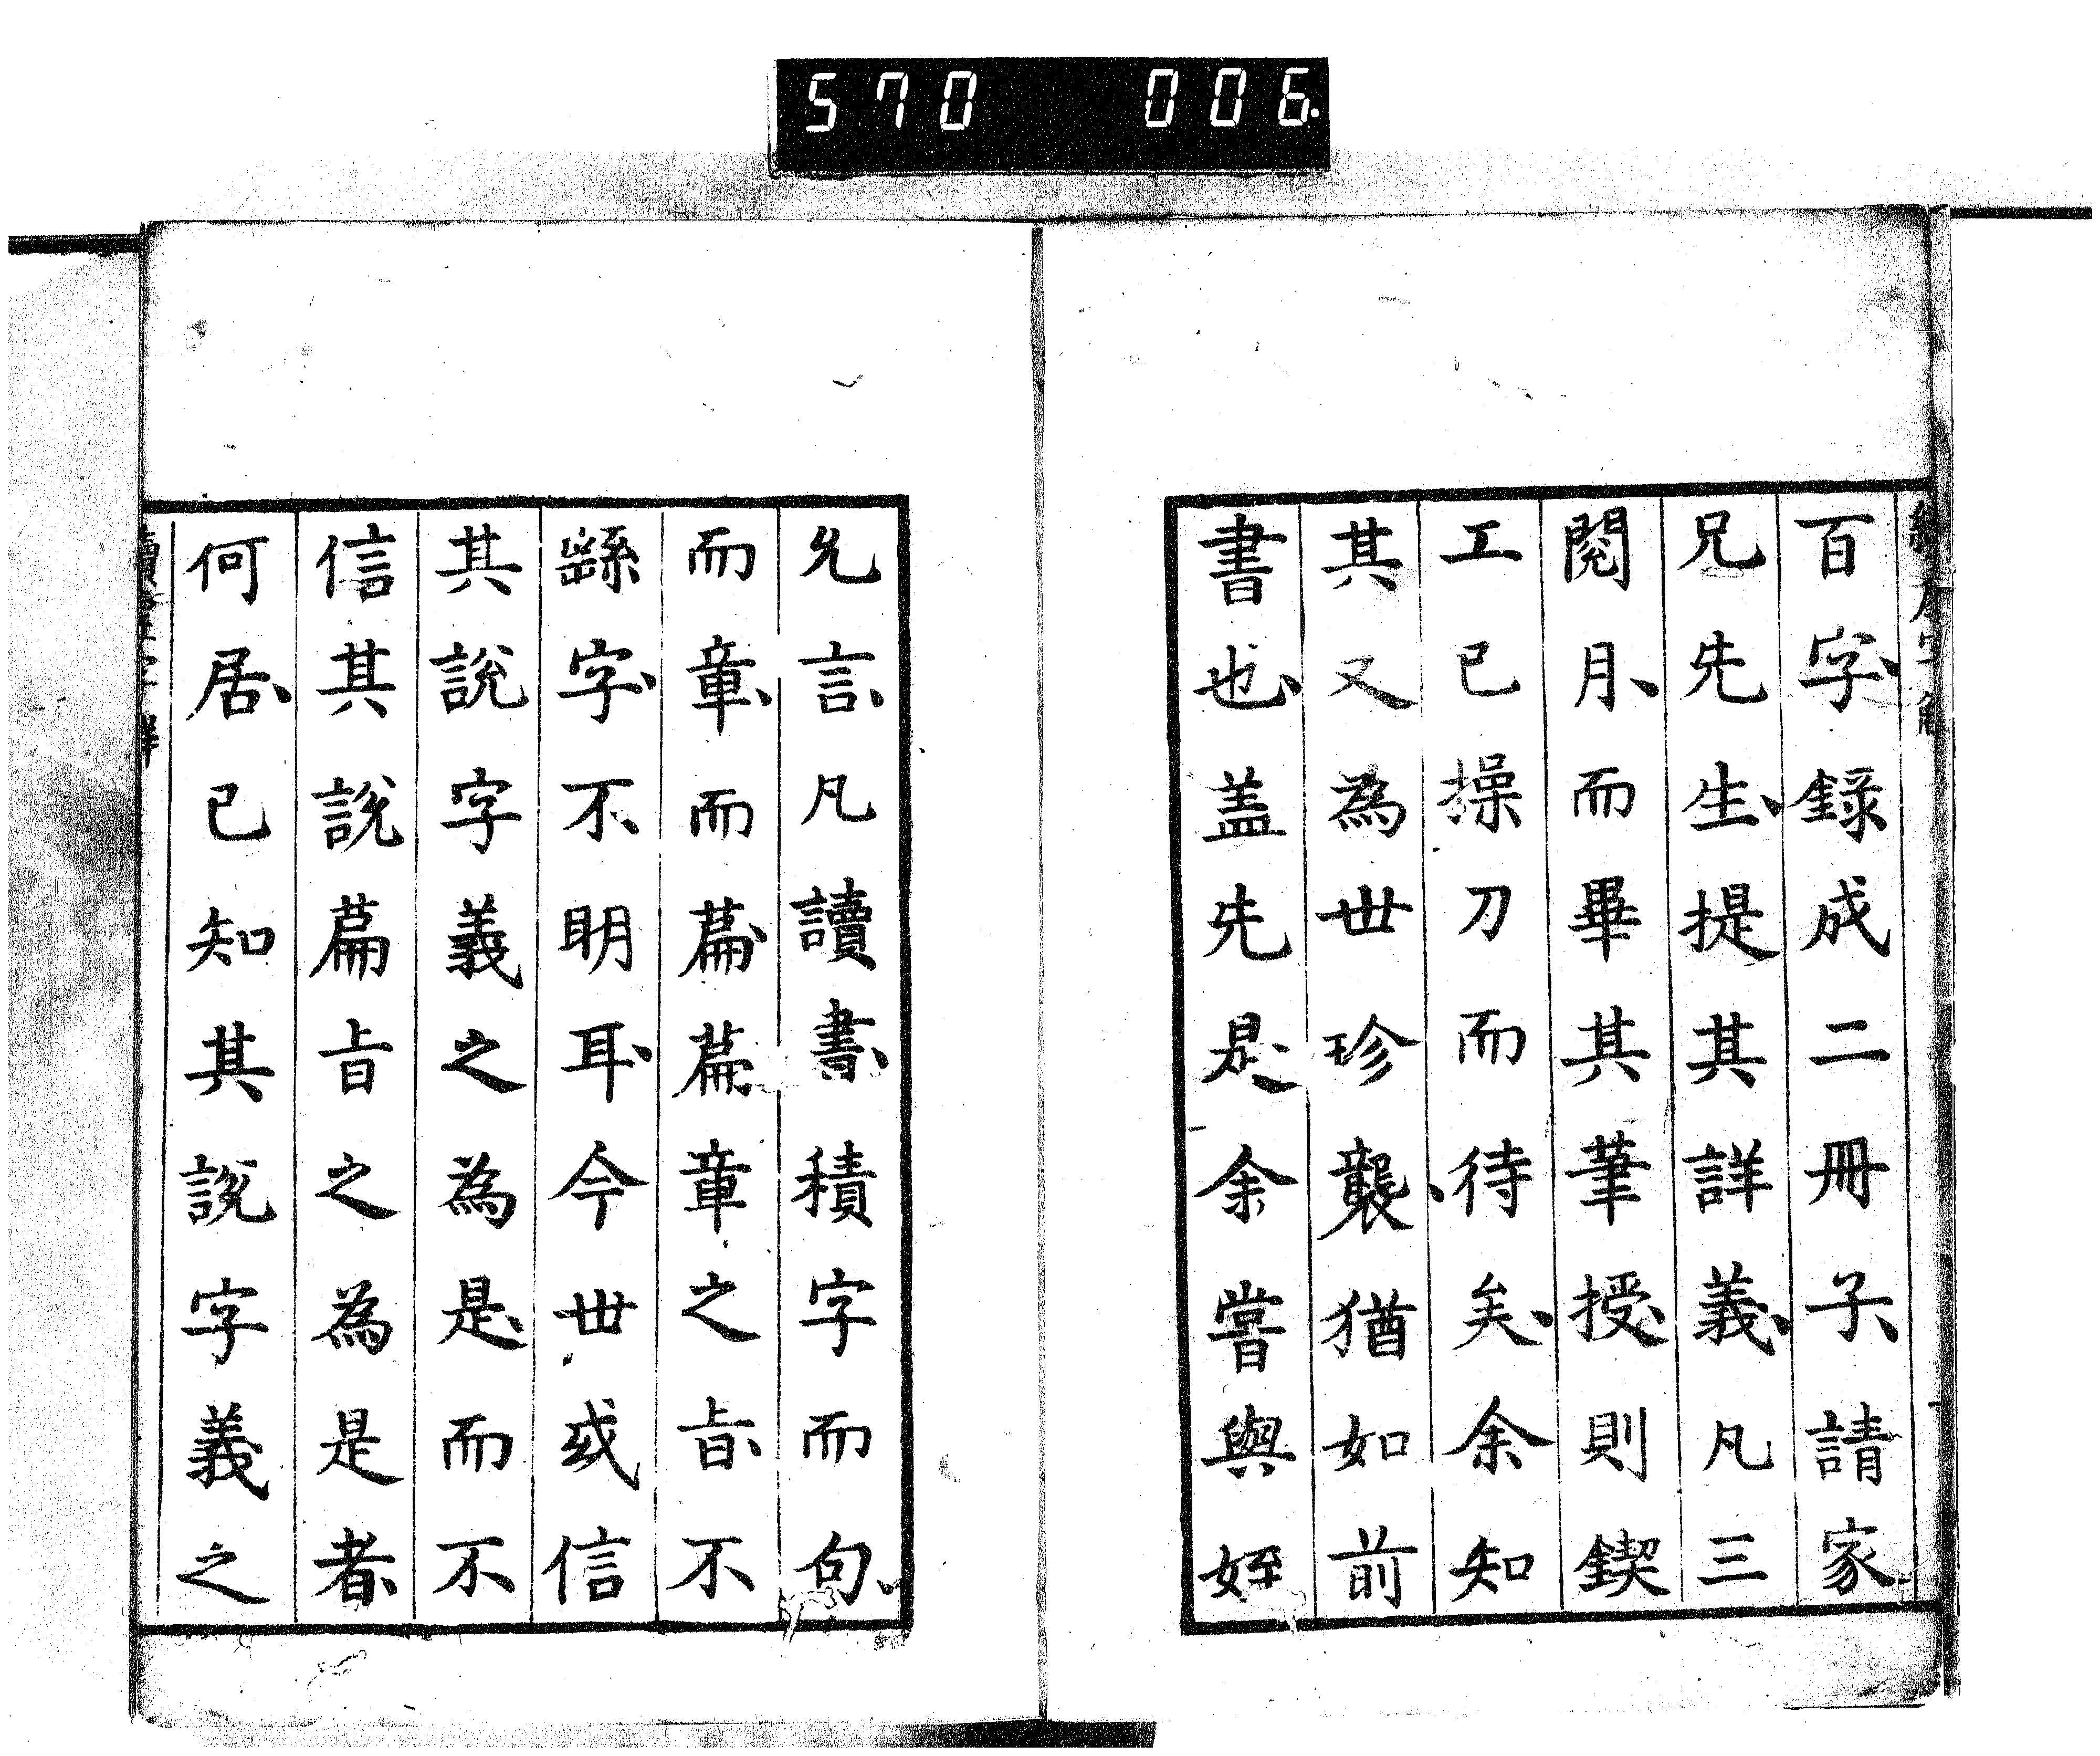 570 006
百字、錄成二冊子請家
兄先生、提其詳義、凡三
閱月、而畢其筆授則鍥
工已操刀而待矣、余知
其又為世珍襲、猶如前
書也、蓋先是余嘗與姪
允言、凡讀書、積字而句、
而章、而篇、篇章之旨、不
繇字、不明耳、今世或信
其說字義之為是、而不
信其說篇旨之為是者、
何居、已知其說字義之